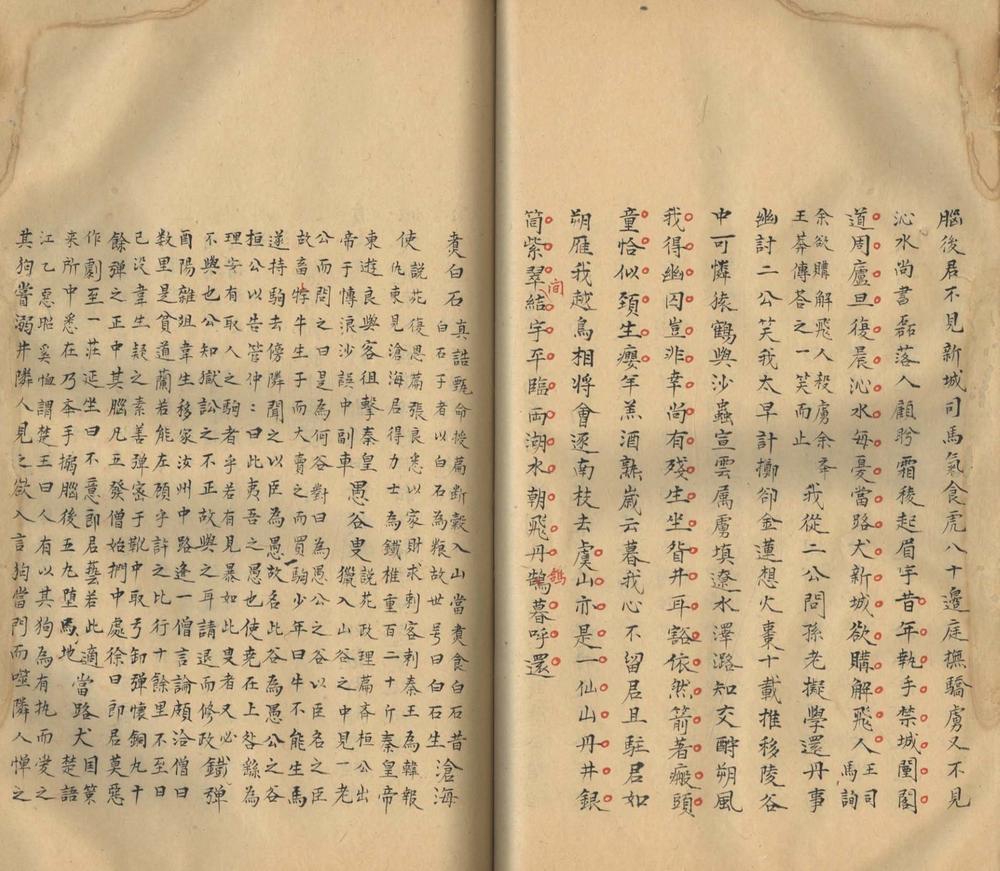 腦後君不見新城司馬氣食虎八十邊庭撫驕虜又不見
沁水尚書磊落人顧盻霜稜起眉宇昔年執手禁城闉閣
道周廬旦復晨沁水每憂當路犬新城欲購解飛人王司馬詢
余欲購解飛人殺虜余奉
王莽傳荅之一笑而止我從二公問孫老擬學還丹事
幽討二公笑我太早計擲卻金蓮想火棗十載推移陵谷
中可憐猿鶴與沙蟲宣雲厲虜填遼水澤潞知交酹朔風
我得幽囚豈非幸尚有殘生坐眢井耳豁依然箭著瘢頭
童恰似頸生癭年羔酒熟歲云暮我心不留君且駐君如
朔雁我越鳥相將會逐南枝去虞山亦是一仙山丹井銀
筒紫翠結宇平臨両湖水朝飛丹鵲暮呼還
間
鵲
煑白石真誥甄命授篇斷穀入山當煑食白石昔
白石子者以白石為粮故世号曰白石生滄海
使說苑復恩篇張良悉以家財求刺客刺秦王為韓報
仇東見滄海居得力士為鐵椎重百二十斤秦皇帝
東遊良與客徂擊秦皇
帝于愽浪沙誤中副車愚谷叟說苑政理篇斉桓公出
獵入山谷之中見一老
公而問之曰是為何谷對曰為愚公之谷以臣名之臣
故畜牸牛生子而大賣之而買駒少年曰牛不能生馬
遂持駒去傍隣聞之以臣為愚故名此谷為愚公之谷
桓公以告管仲：曰此夷吾之愚也使堯在上咎繇為
理安有取人之駒者乎若有見暴如此叟者又必
不與也公知獄訟之不正故與之耳請退而修政鐵弹
酉陽雜俎韋生移家汝州中路逢一僧言論頗洽僧曰
数里是貧道蘭若能左顧乎許之比行十餘里不至曰
已没韋生疑之素善弹密于靴中取弓卸弹懷銅丸十
餘弹之正中其腦凡五發僧始捫中處徐曰郎君莫惡
作劇至一荘延坐曰不意郎君藝若此適
来所中悉在乃奉手搦腦後五九堕馬地當路犬囯策楚語
江乙惡昭奚恤謂楚王曰人有以其狗為有执而愛之
其狗嘗溺井隣人見之欲入言狗當門而噬隣人憚之